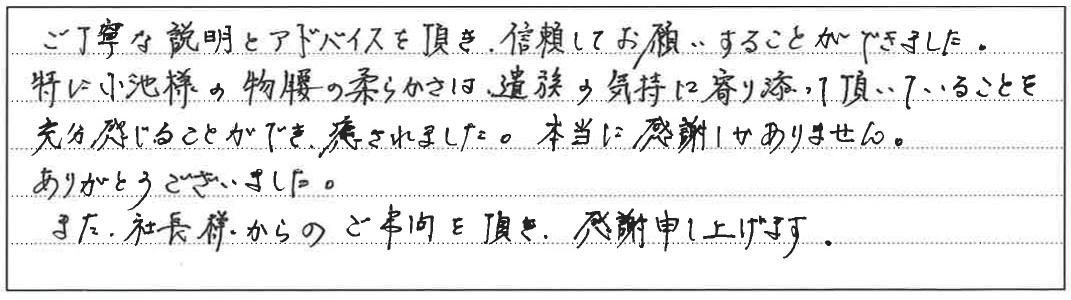 ご丁寧な説明とアドバイスを頂き、信頼してお願いすることができました。
特に小池様の物腰の柔らかさは、遺族の気持に寄り添って頂いていることを
充分感じることができ、癒されました。本当に感謝しかありません。
ありがとうございました。
また、社長様からのご弔問を頂き、感謝申し上げます。